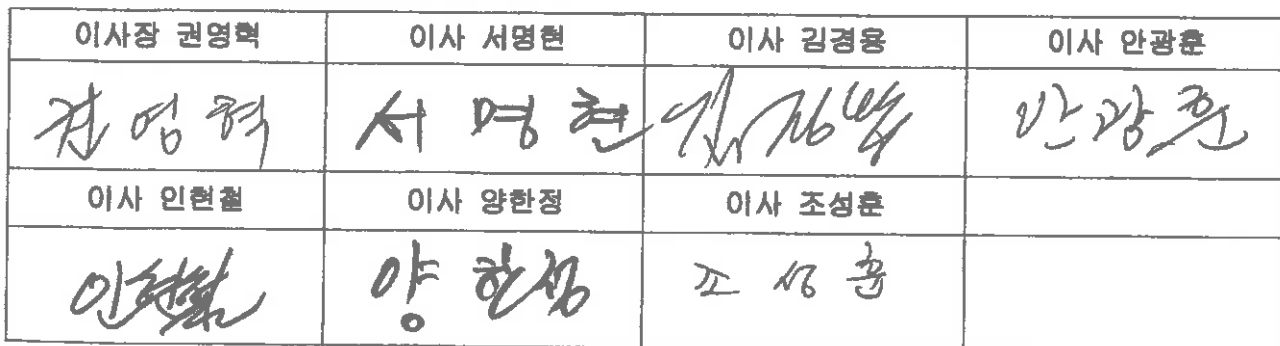 이사장 권영혁 이사 서명현 이사 김경용 이사 안광훈
권영혁 서명현 김경용 안광훈
이사 인현철 이사 양한정 이사 조성훈
인현철 양한정 조성훈